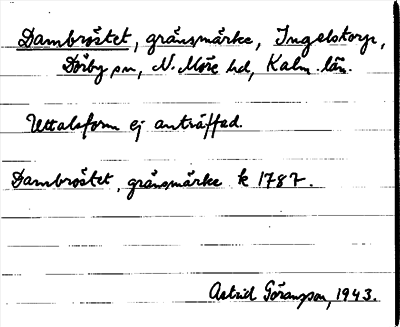 Dambröstet, gränsmärke, Ingelstorp,
Dörby sn, N. Möre hd, Kalm. län.
Uttalsform ej anträffad.
Dambröstet, gränsmärke k 1787.
Astrid Göransson, 1943.